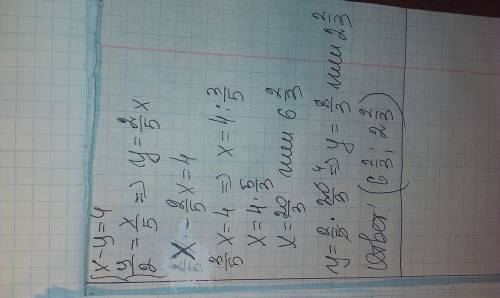 {x-y=4
{y/2 = x/5 => y = 2/5 x
x - 2/5 x = 4
3/5 x = 4 => x = 4 : 3/5
x = 4 · 5/3
x = 20/3 или 6 2/3
y = 2/5 · 20/3 => y = 8/3 или 2 2/3
Ответ: (6 2/3; 2 2/3)